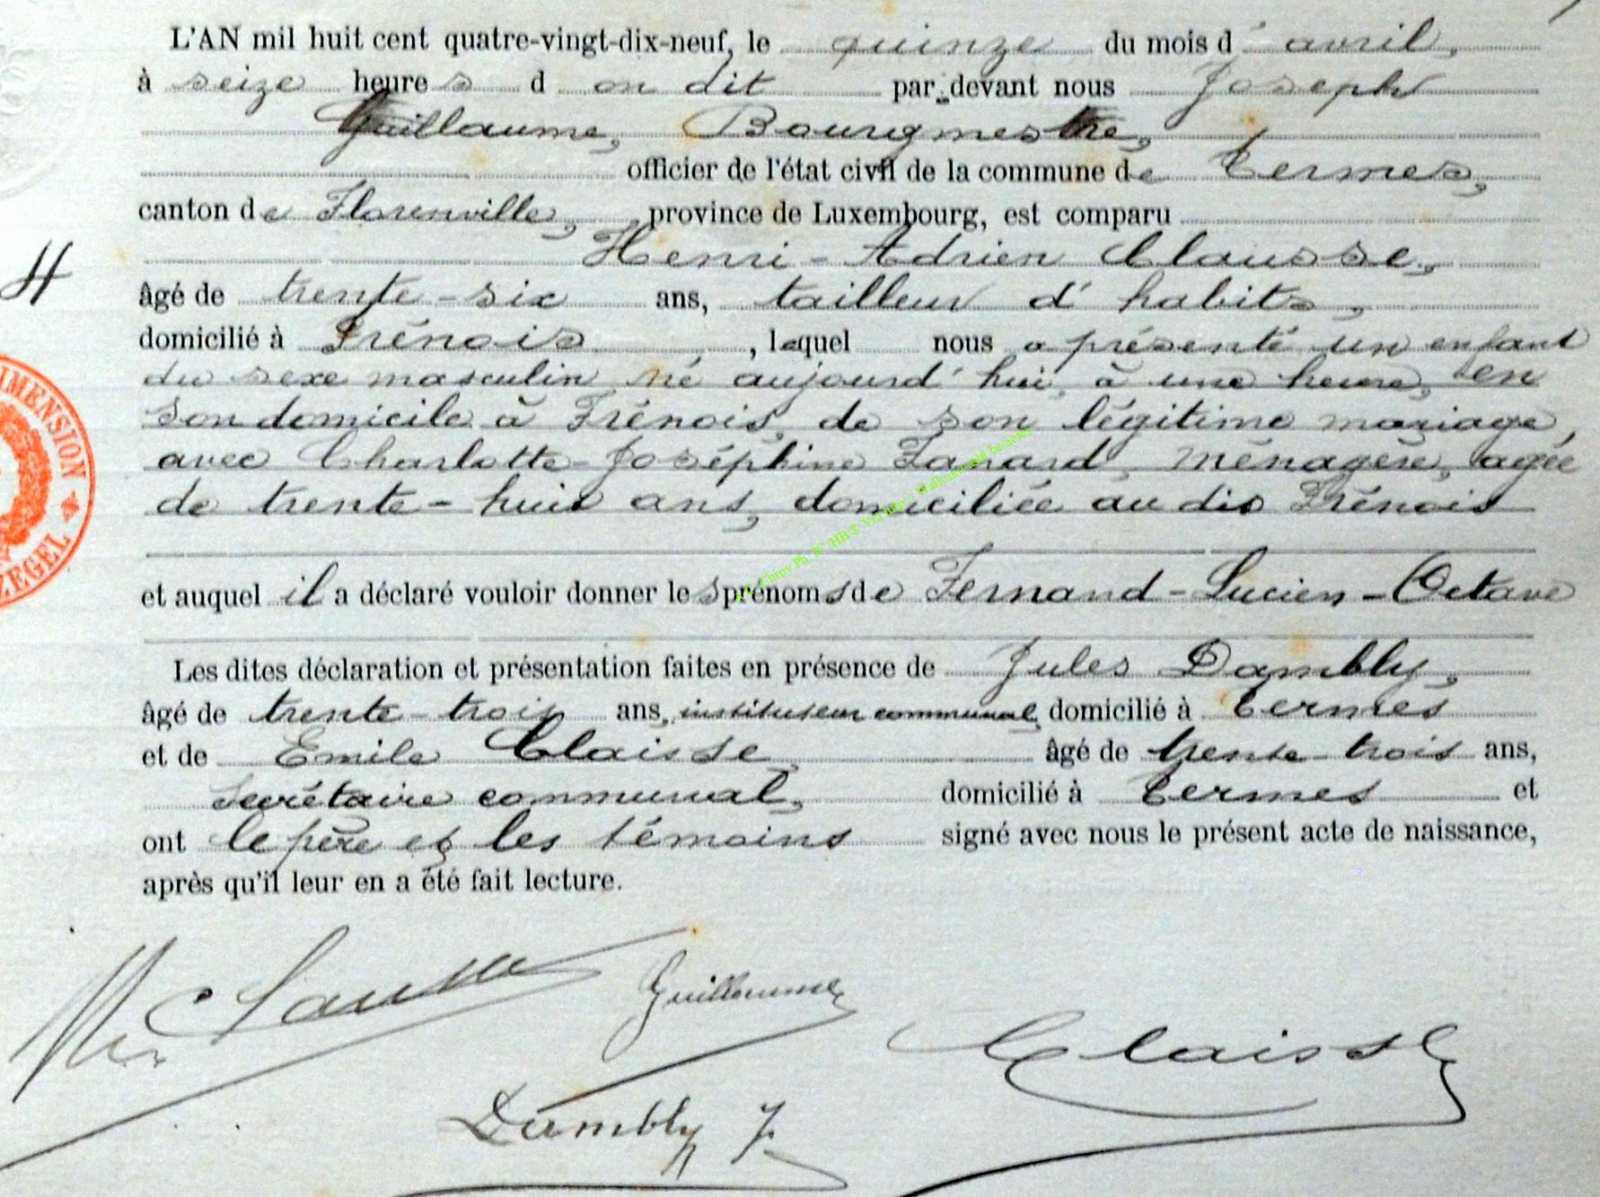 L'AN mil huit cent quatre-vingt-dix-neuf, le quinze du mois d' avril,
à seize heures d on dit par devant nous Joseph
Guillaume, Bourgmestre,
officier de l'état civil de la commune de Termes,
canton de Florenville, province de Luxembourg, est comparu
Henri-Adrien Clausse,
âgé de trente-six ans, tailleur d'habits,
domicilié à Frénois, lequel nous a présenté un enfant
du sexe masculin né aujourd'hui, à une heure, en
son domicile à Frénois, de son légitime mariage,
avec Charlotte-Joséphine Fanard, ménagère, agée
de trente-huit ans, domiciliée au dit Frénois
et auquel il a déclaré vouloir donner les prénoms de Fernand-Lucien-Octave
Les dites déclaration et présentation faites en présence de Jules Dambly,
âgé de trente-trois ans, instituteur communal, domicilié à Termes
et de Emile Claisse, âgé de trente trois ans,
secrétaire communal, domicilié à Termes et
ont le père et les témoins signé avec nous le présent acte de naissance,
après qu'il leur en a été fait lecture.
H
DIMENSION
ZEGEL
Clausse
Guillaume
Claisse
Dambly J.